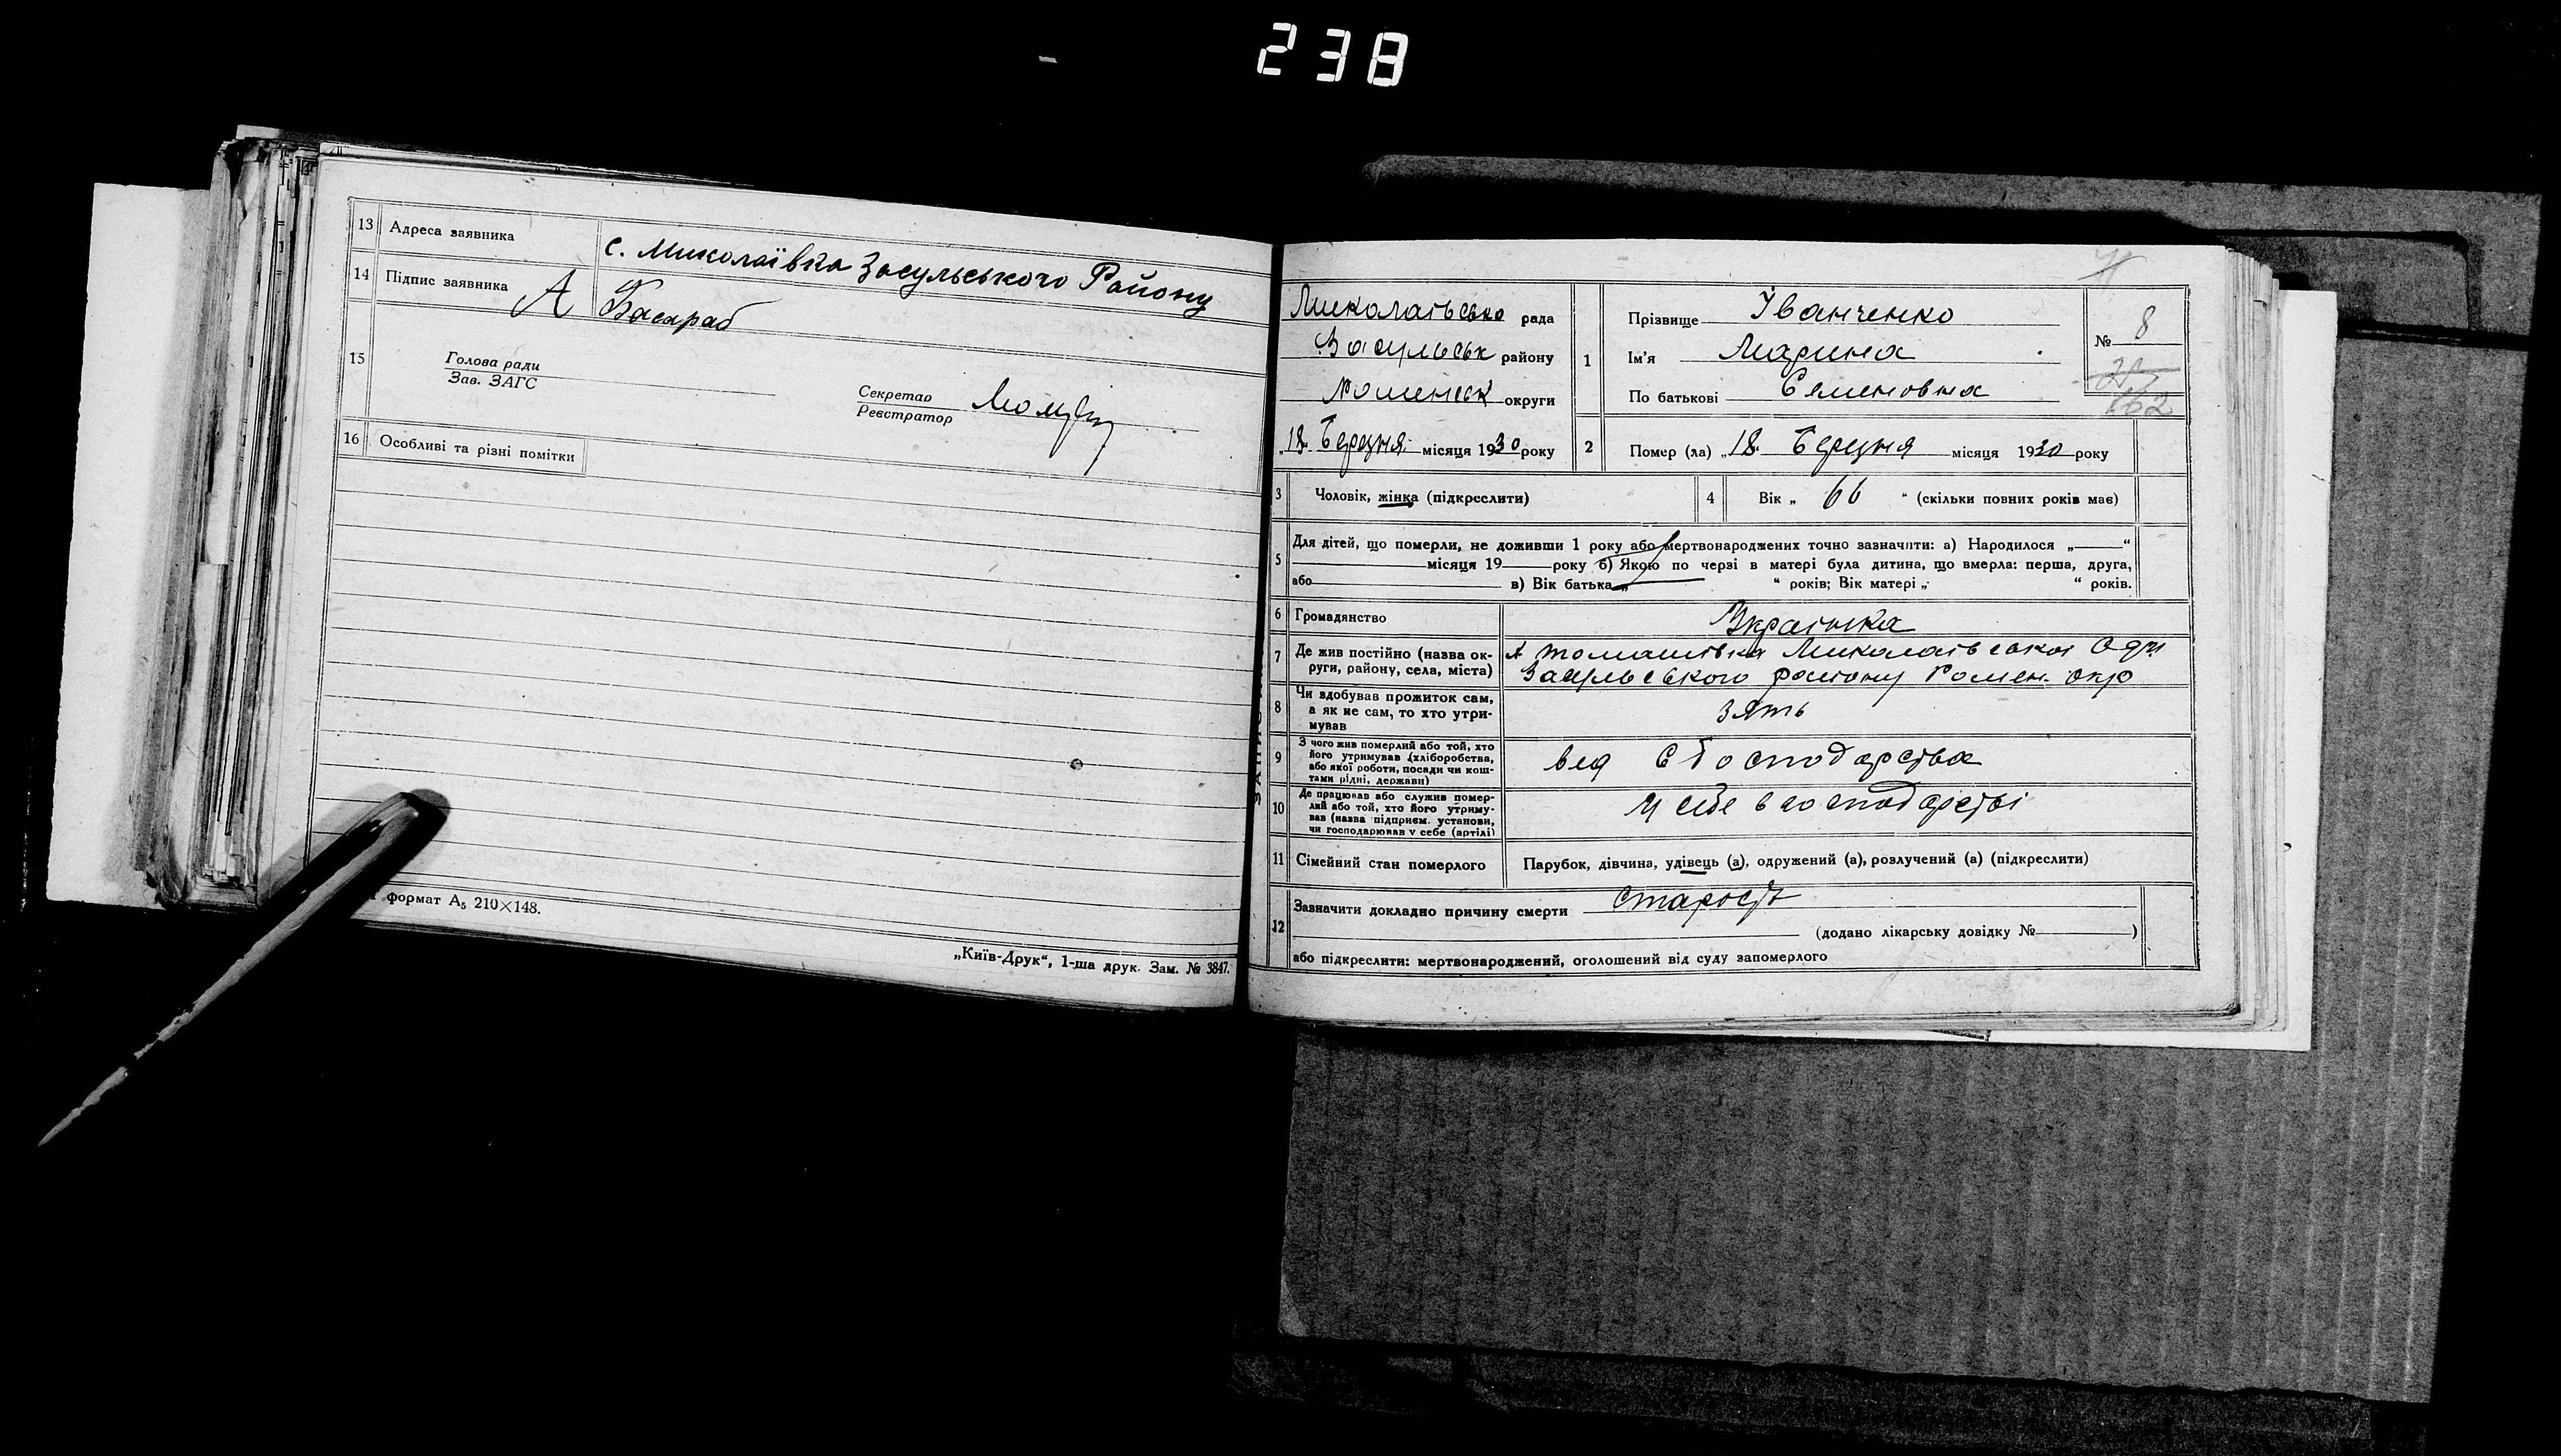 238
13 Адреса заявника с. Миколаївка Засульського Району
14 Підпис заявника А Басараб
15 Голова ради
Зав. ЗАГС
Секретар
Реєстратор
16 Особливі та різні помітки
формат А5 210×148.
„Київ-Друк“, 1-ша друк. Зам. № 3847.
Миколаївська рада
Засульськ району
Роменськ округи
„18. Березня місяця 1930 року
1 Прізвище Іванченко
Ім'я Марина
По батькові Семеновна
№ 8
2 Помер (ла) „18. Березня місяця 1930 року
3 Чоловік, жінка (підкреслити)
4 Вік „ 66 “ (скільки повних років має)
5 Для дітей, що померли, не доживши 1 року або мертвонароджених точно зазначити: а) Народилося „ “
місяця 19 року б) Якою по черзі в матері була дитина, що вмерла: перша, друга,
або в) Вік батька „ “ років; Вік матері „ “ років.
6 Громадянство Українка
7 Де жив постійно (назва ок-
руги, району, села, міста)
х Томашівка Миколаівської
Засульського району Ромен. окр
8 Чи здобував прожиток сам,
а як не сам, то хто утри-
мував
зять
9 З чого жив померлий або той, хто
його утримував (хліборобства,
або якої роботи, посади чи кош-
тами рідні, держави)
господарства
10 Де працював або служив помер-
лий або той, хто його утриму-
вав (назва підприєм. установи,
чи господарював у себе (артілі)
у себе в господарстві
11 Сімейний стан померлого Парубок, дівчина, удівець (а), одружений (а), розлучений (а) (підкреслити)
12 Зазначити докладно причину смерти старость
(додано лікарську довідку № )
або підкреслити: мертвонароджений, оголошений від суду запомерлого